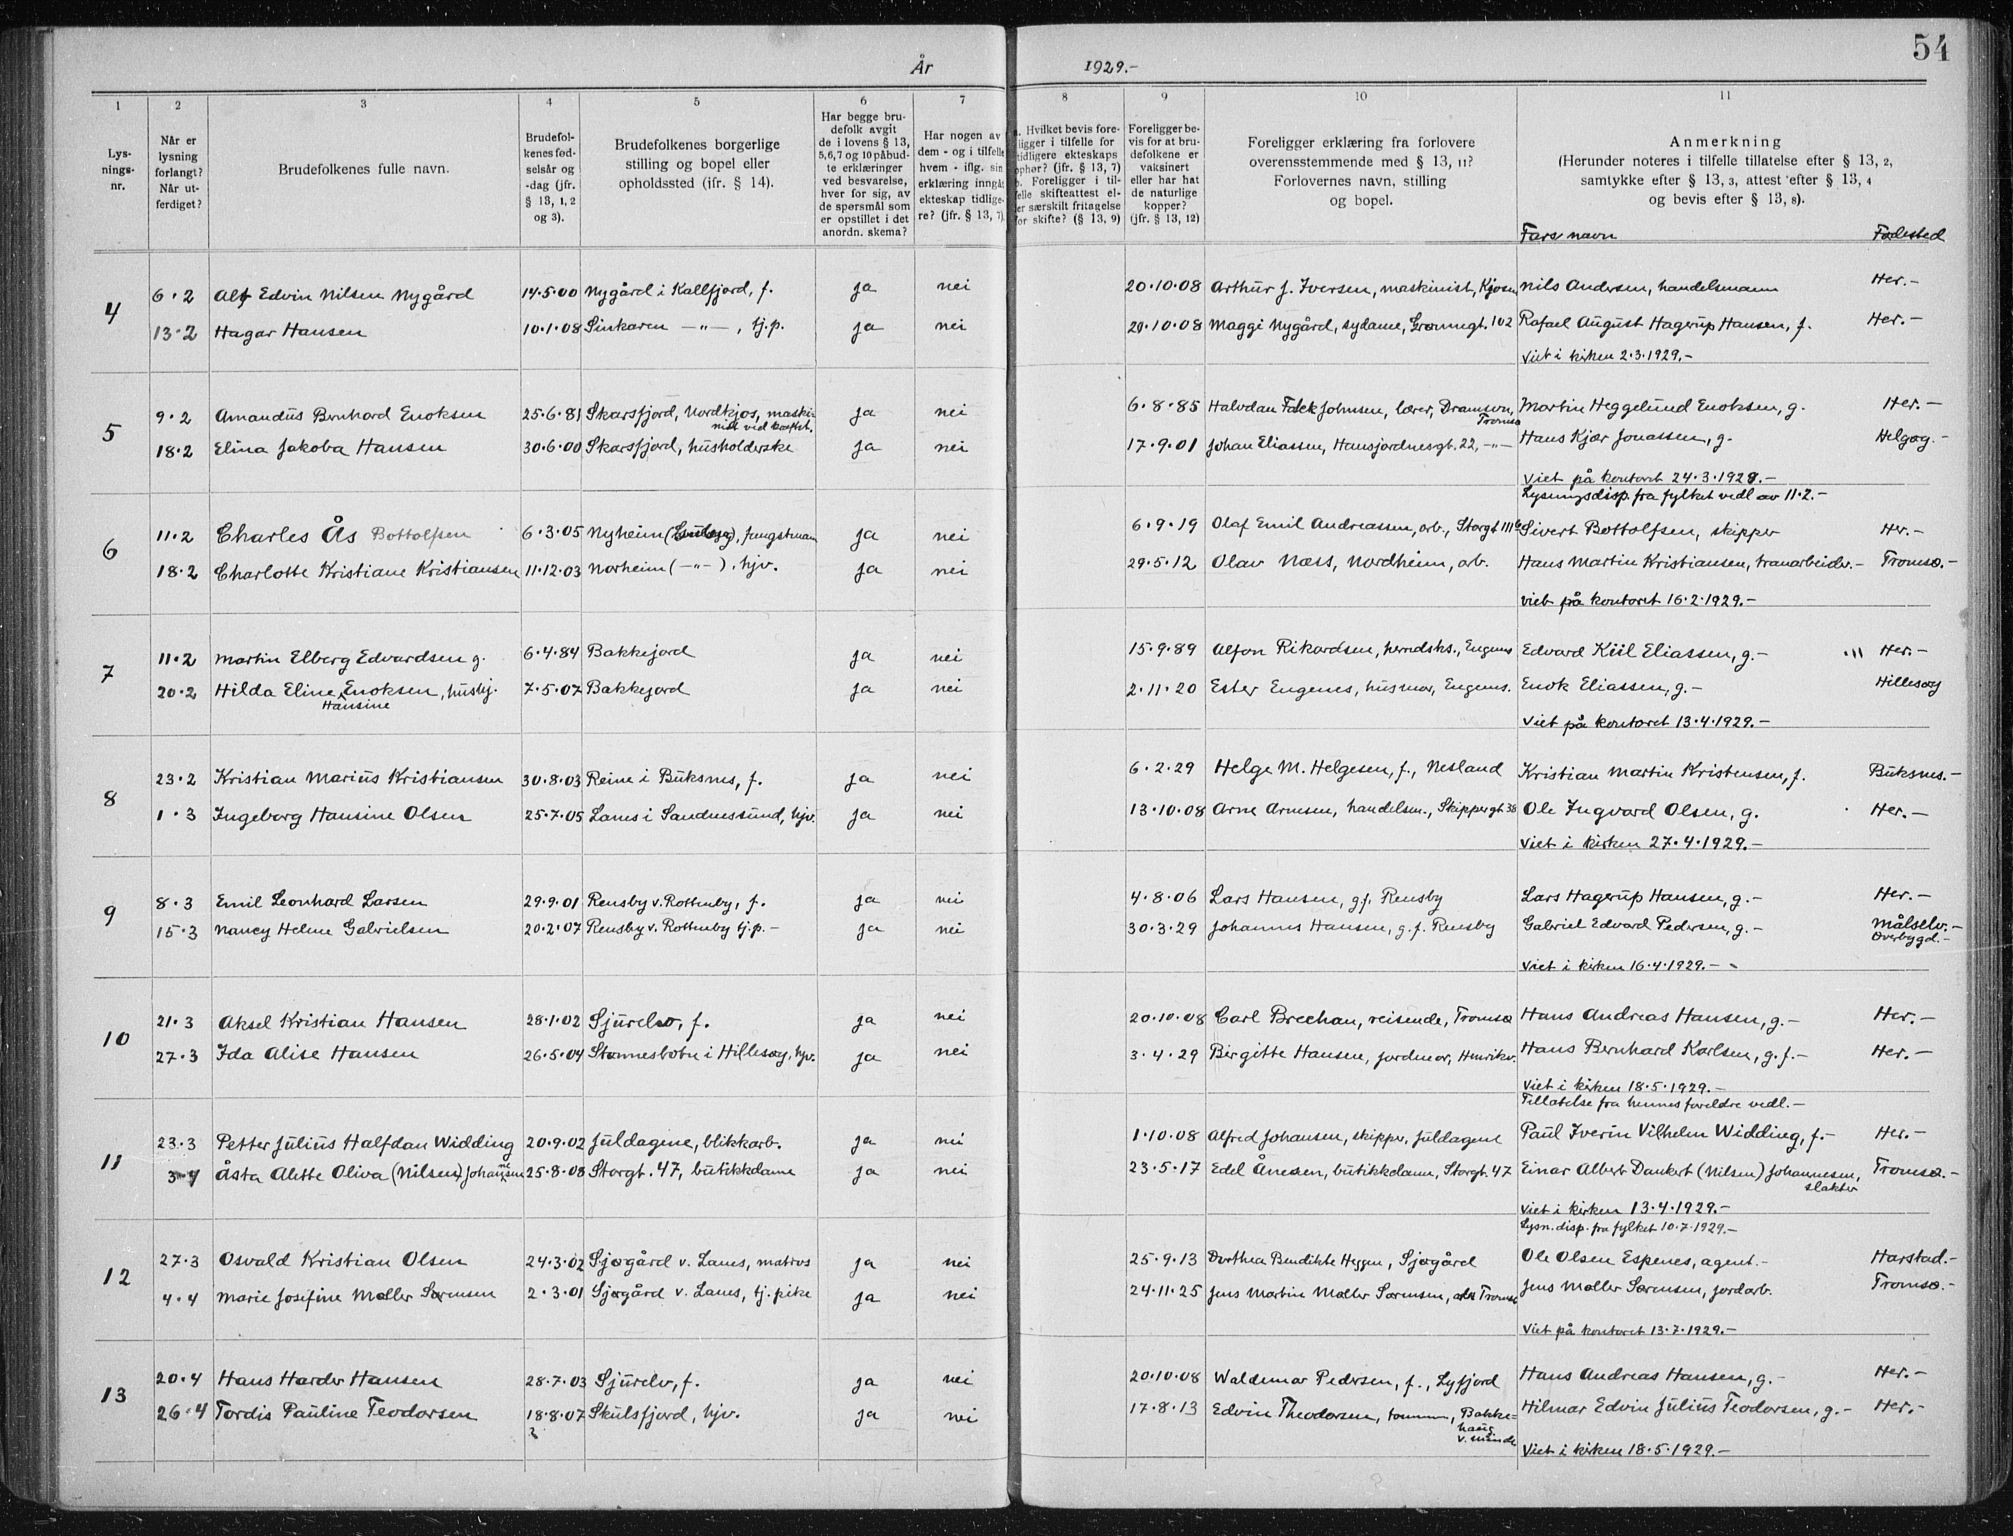 54
År 1929.-
1 2 3 4 5 6 7 8 9 10 11
Lys-
nings-
nr.
Når er
lysning
forlangt?
Når ut-
ferdiget?
Brudefolkenes fulle navn.
Brudefol-
kenes fød-
selsår og
-dag (jfr.
§ 13, 1, 2
og 3).
Brudefolkenes borgerlige
stilling og bopel eller
opholdssted (jfr. § 14).
Har begge bru-
defolk avgit
de i lovens § 13,
5,6,7 og 10 påbud-
te erklæringer
ved besvarelse,
hver for sig, av
de spørsmål som
er opstillet i det
anordn. skema?
Har nogen av
dem - og i tilfelle
hvem - iflg. sin
erklæring inngåt
ekteskap tidlige-
re? (jfr. § 13, 7).
a. Hvilket bevis fore-
ligger i tilfelle for
tidligere ekteskaps
ophør? (jfr. § 13, 7)
b. Foreligger i til-
felle skifteattest el-
ler særskilt fritagelse
for skifte? (§ 13, 9)
Foreligger be-
vis for at bru-
defolkene er
vaksinert
eller har hat
de naturlige
kopper?
(jfr. § 13, 12)
Foreligger erklæring fra forlovere
overensstemmende med § 13, 11?
Forlovernes navn, stilling
og bopel.
Anmerkning
(Herunder noteres i tilfelle tillatelse efter § 13, 2,
samtykke efter § 13, 3, attest efter § 13, 4
og bevis efter § 13, 8).
Fars navn Fødested
4 6.2 Alf Edvin Nilsen Nygård 14.5.00 Nygård i Kallfjord, f. ja nei 20.10.08 Arthur J. Iversen, maskinist, Kjosen Nils Andersen, handelsmann Her.-
13.2 Hagar Hansen 10.1.08 Sinkaren -"-, tj.p. ja nei 20.10.08 Maggi Nygård, sydame, Grønnegt. 102 Rafael August Hagerup Hansen, f. Her.-
Viet i kirken 2.3.1929.-
5 9.2 Amandus Bernhard Enoksen 25.6.81 Skarsfjord, Nordkjos, maski-
nist ved ja nei 6.8.85 Halvdan Falck Johnsen, lærer, Dramsvn, Tromsø Martin Heggelund Enoksen, g. Her.-
18.2 Elina Jakoba Hansen 30.6.00 Skarsfjord, husholderske ja nei 17.9.01 Johan Eliassen, Hansjordnesgt. 22, -"- Hans Kjær Jonassen, g. Helgøy.-
Viet på kontoret 24.3.1929.-
Lysningsdisp. fra fylket vedl av 11.2.-
6 11.2 Charles Ås Bottolfsen 6.3.05 Nyheim ja nei 6.9.19 Olaf Emil Andreassen, arb., Storgt Sivert Bottolfsen, skipper Her.-
18.2 Charlotte Kristiane Kristiansen 11.12.03 Norheim (-"-), hjv. ja nei 29.5.12 Olav Næss, Nordheim, arb. Hans Martin Kristiansen, tranarbeider.- Tromsø.-
viet på kontoret 16.2.1929.-
7 11.2 Martin Elberg Edvardsen g. 6.4.84 Bakkejord ja nei 15.9.89 Alfon Rikardsen, herredsks., Engenes Edvard Kiil Eliassen, g.- Her.-
20.2 Hilda Eline Enoksen, hushj.
Hansine 7.5.07 Bakkejord ja nei 2.11.20 Ester Engenes, husmor, Engenes. Enok Eliassen, g.- Hillesøy
Viet på kontoret 13.4.1929.-
8 23.2 Kristian Marius Kristiansen 30.8.03 Reine i Buksnes, f. ja nei 6.2.29 Helge M. Helgesen, f., Nesland Kristian Martin Kristensen, f. Buksnes.-
1.3 Ingeborg Hansine Olsen 25.7.05 Lanes i Sandnessund, hjv. ja nei 13.10.08 Arne Arnesen, handelsm., Skippergt 38 Ole Ingvard Olsen, g. Her.-
Viet i kirken 27.4.1929.-
9 8.3 Emil Leonhard Larsen 29.9.01 Rensby v. Rottenby, f. ja nei 4.8.06 Lars Hansen, g.f. Rensby Lars Hagerup Hansen, g.- Her.-
15.3 Nancy Helene Gabrielsen 20.2.07 Rensby v. Rottenby tj.p.- ja nei 30.3.29 Johannes Hansen, g.f. Rensby Gabriel Edvard Pedersen, g.- Målselv.-
Øverbygd.-
Viet i kirken 16.4.1929.-
10 21.3 Aksel Kristian Hansen 28.1.02 Sjurelv, f. ja nei 20.10.08 Carl Brechan, reisende, Tromsø Hans Andreas Hansen, g.- Her.-
27.3 Ida Alise Hansen 26.5.04 Stønnesbotn i Hillesøy, hjv. ja nei 3.4.29 Birgitte Hansen, jordmor, Henrikv. Hans Bernhard Karlsen, g.f.- Her.-
Viet i kirken 18.5.1929.-
Tillatelse fra hennes foreldre vedl.-
11 23.3 Petter Julius Halfdan Widding 20.9.02 Juldagene, blikkarb. ja nei 1.10.08 Alfred Johansen, skipper, Juldagene Paul Iverin Vilhelm Widding, f.- Her.-
3.4 Åsta Alette Oliva (Nilsen) Johannesen 25.8.08 Storgt. 47, butikkdame ja nei 23.5.17 Edel Ånesen, butikkdame, Storgt. 47 Einar Albert Dankert (Nilsen) Johannesen,
slakter Tromsø.-
Viet i kirken 13.4.1929.-
Lysn.disp. fra fylket 10.7.1929.-
12 27.3 Osvald Kristian Olsen 24.3.02 Sjøgård v. Lanes, matros ja nei 25.9.13 Dorthea Bendikte Heggen, Sjøgård Ole Olsen Espenes, agent.- Harstad.-
4.4 Marie Josefine Møller Sørensen 2.3.01 Sjøgård v. Lanes, tj.pike ja nei 24.11.25 Jens Martin Møller Sørensen, arb. Tromsø Jens Møller Sørensen, jordarb. Tromsø.-
Viet på kontoret 13.7.1929.-
13 20.4 Hans Harder Hansen 28.7.03 Sjurelv, f. ja nei 20.10.08 Waldemar Pedersen, f., Lyfjord Hans Andreas Hansen, g.- Her.-
26.4 Tordis Pauline Teodorsen 18.8.07 Skulsfjord, hjv. ja nei 17.8.13 Edvin Theodorsen, Bakke-
haug
v. Hilmar Edvin Julius Teodorsen, g.- Her.-
Viet i kirken 18.5.1929.-